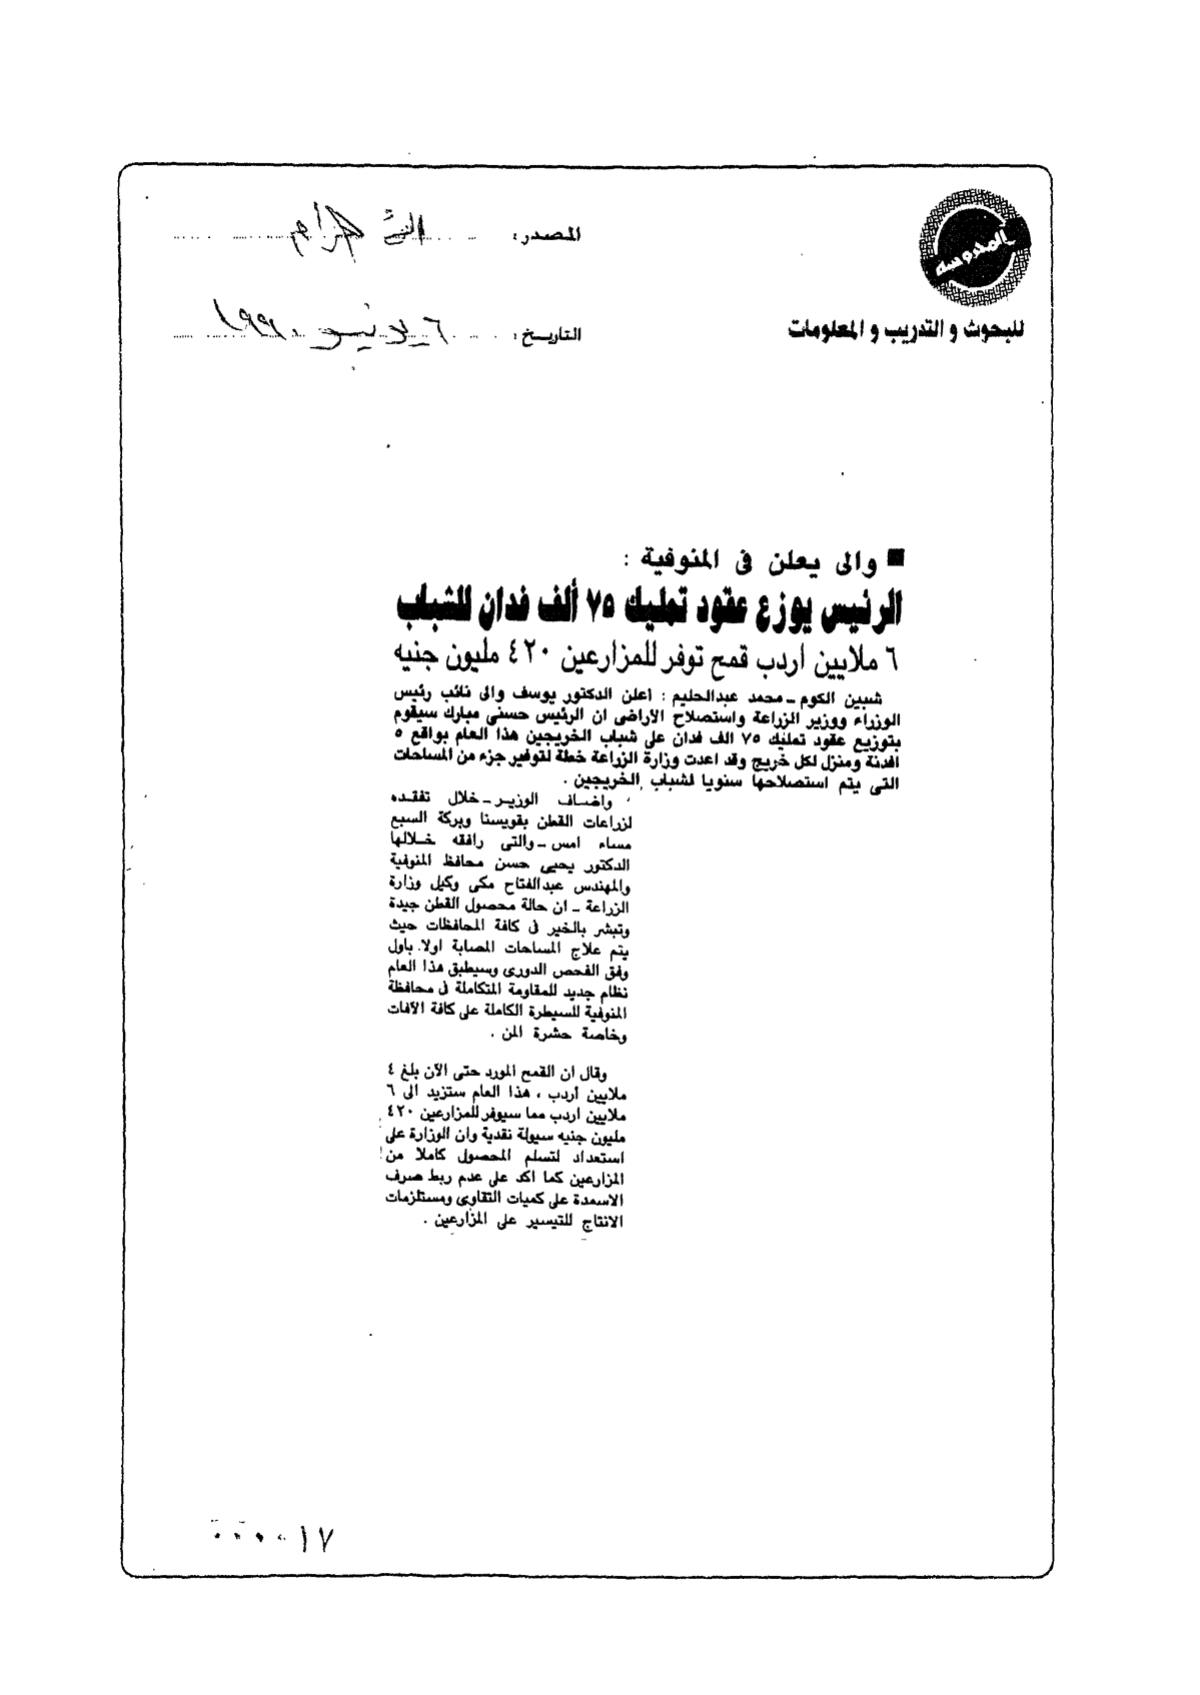 المدوسه
للبحوث و التدريب و المعلومات
المصدر: الأهرام
التاريخ: ٦ يونيو ١٩٩٠
■ والى يعلن فى المنوفية :
الرئيس يوزع عقود تمليك ٧٥ ألف فدان للشباب
٦ ملايين اردب قمح توفر للمزارعين ٤٢٠ مليون جنيه
شبين الكوم ـ محمد عبدالحليم : اعلن الدكتور يوسف والى نائب رئيس
الوزراء ووزير الزراعة واستصلاح الأراضى ان الرئيس حسنى مبارك سيقوم
بتوزيع عقود تمليك ٧٥ الف فدان على شباب الخريجين هذا العام بواقع ٥
افدنة ومنزل لكل خريج وقد اعدت وزارة الزراعة خطة لتوفير جزء من المساحات
التى يتم استصلاحها سنويا لشباب الخريجين .
واضاف الوزير ـ خلال تفقده
لزراعات القطن بقويسنا وبركة السبع
مساء امس ـ والتى رافقه خلالها
الدكتور يحيى حسن محافظ المنوفية
والمهندس عبدالفتاح مكى وكيل وزارة
الزراعة ـ ان حالة محصول القطن جيدة
وتبشر بالخير فى كافة المحافظات حيث
يتم علاج المساحات المصابة اولا باول
وفق الفحص الدورى وسيطبق هذا العام
نظام جديد للمقاومة المتكاملة فى محافظة
المنوفية للسيطرة الكاملة على كافة الآفات
وخاصة حشرة المن .
وقال ان القمح المورد حتى الآن بلغ ٤
ملايين أردب ، هذا العام ستزيد الى ٦
ملايين اردب مما سيوفر للمزارعين ٤٢٠
مليون جنيه سيولة نقدية وان الوزارة على
استعداد لتسلم المحصول كاملا من
المزارعين كما اكد على عدم ربط صرف
الاسمدة على كميات التقاوى ومستلزمات
الانتاج للتيسير على المزارعين .
٠٠٠٠١٧